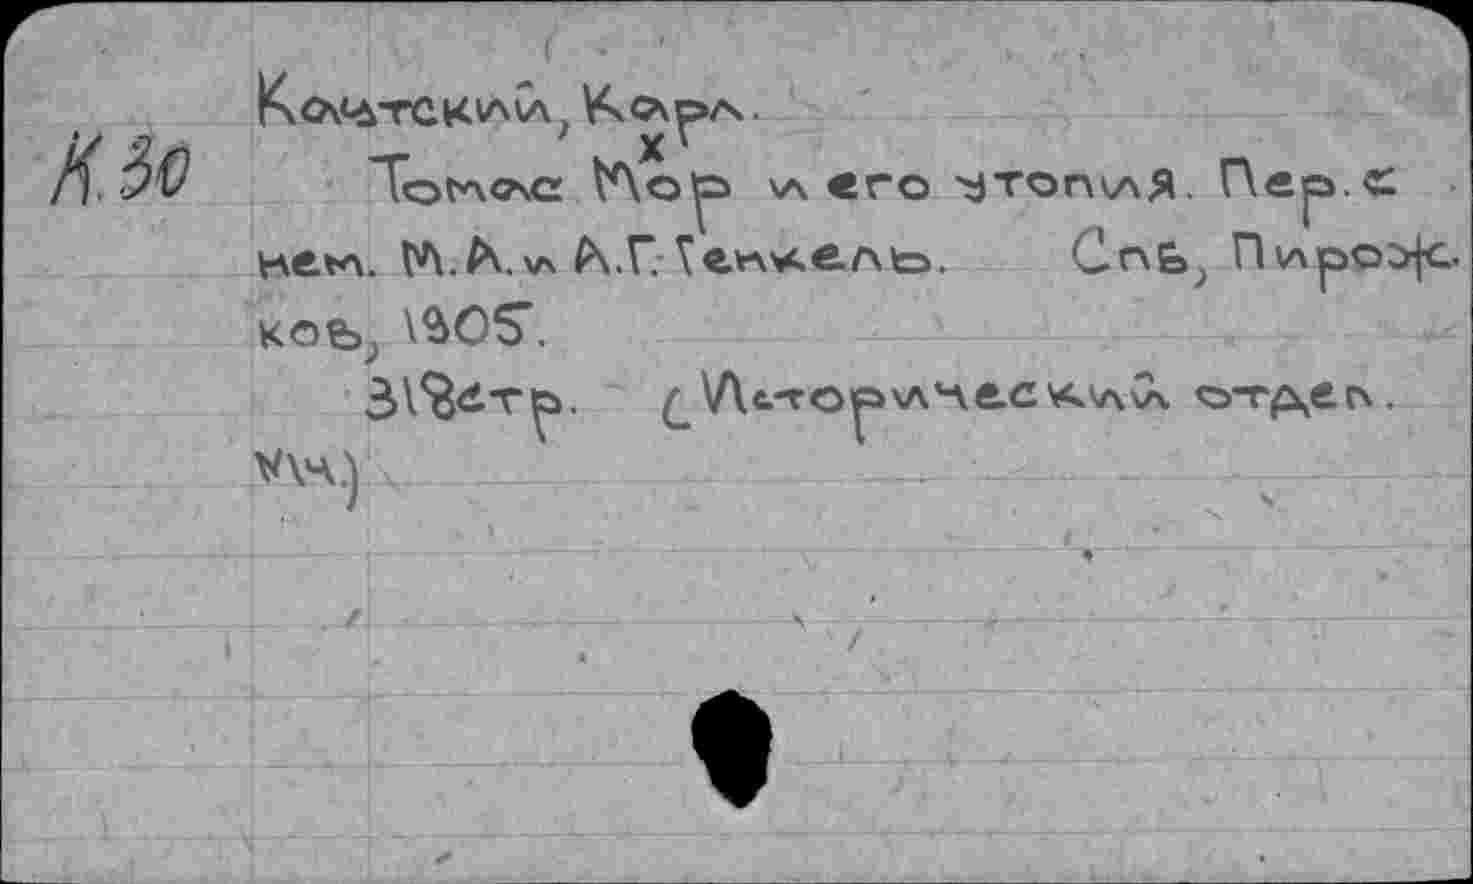 Каутский, Карл.
К.30
Томас Мор и его утопия. Пер. с
нем. М.А. и А.Г. Генкель. Спб, Пирож-
ков, 1905.
319 стр. (Исторический отдел.
)